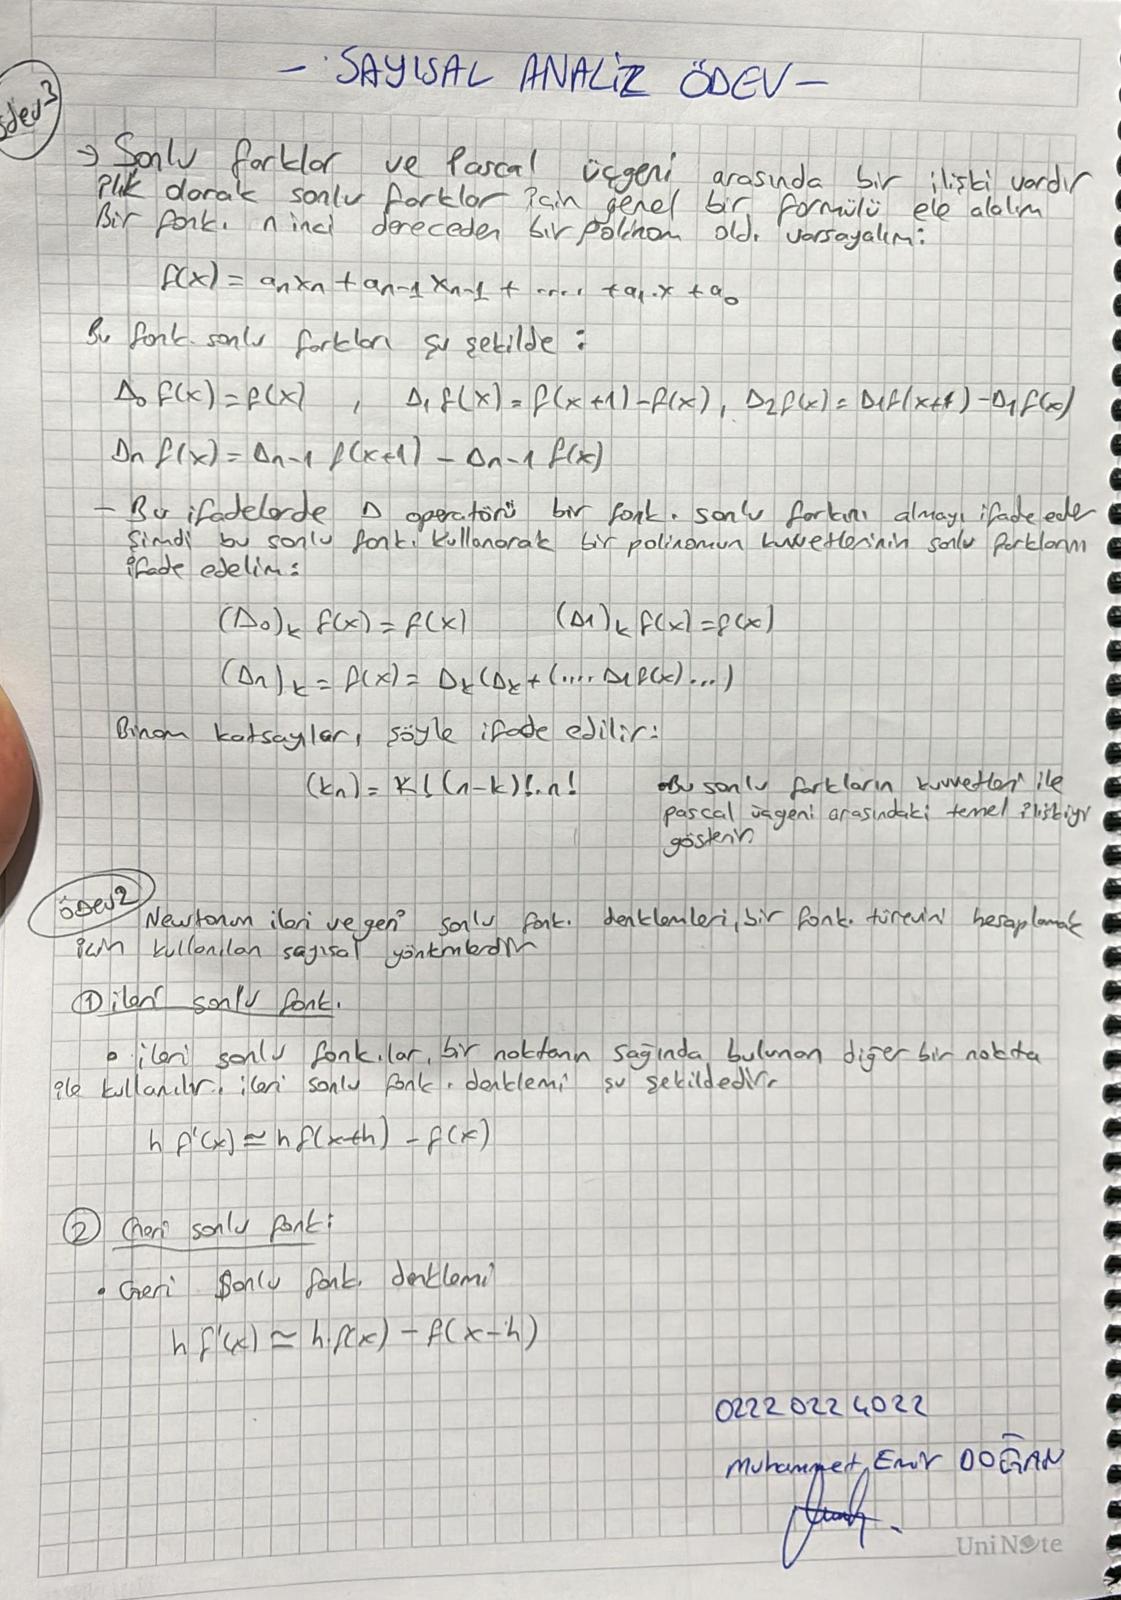 - SAYISAL ANALİZ ÖDEV -
ödev3
→ Sonlu farklar ve Pascal üçgeni arasında bir ilişki vardır
İlk olarak sonlu farklar için genel bir formülü ele alalım
Bir fonk. n inci dereceden bir polinom old. varsayalım:
f(x) = anxn + an-1 xn-1 + .... + a1.x + a0
Bu fonk. sonlu farkları şu şekilde :
Δ0 f(x) = f(x) , Δ1 f(x) = f(x+1) - f(x), Δ2f(x) = Δ1f(x+1) - Δ1f(x)
Δn f(x) = Δn-1 f(x+1) - Δn-1 f(x)
- Bu ifadelerde Δ operatörü bir fonk. sonlu farkını almayı ifade eder
Şimdi bu sonlu fonk. kullanarak bir polinomun kuvvetlerinin sonlu farklarını
ifade edelim:
(Δ0)k f(x) = f(x) (Δ1)k f(x) = f(x)
(Δn)k = f(x) = Δk(Δk+(.... Δ1f(x)...)
Binom katsayılar, şöyle ifade edilir:
(kn) = k!(n-k)!.n!
• Bu sonlu farkların kuvvetleri ile
pascal üçgeni arasındaki temel ilişkiyi
gösterir
ödev2
Newtonun ileri ve geri sonlu fonk. denklemleri, bir fonk. türevini hesaplamak
için kullanılan sayısal yöntemlerdir
① ileri sonlu fonk.
• ileri sonlu fonk.lar, bir noktanın sağında bulunan diğer bir nokta
ile kullanılır. ileri sonlu fonk. denklemi şu şekildedir.
h f'(x) ≃ h f(x+h) - f(x)
② Geri sonlu fonk:
• Geri Sonlu fonk. denklemi
h f'(x) ≃ h.f(x) - f(x-h)
02220224022
Muhammet Emir DOĞAN
UniNote